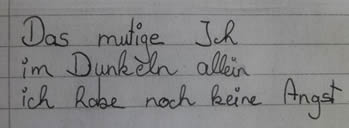 Das mutige Ich
im Dunkeln allein
ich habe noch keine Angst